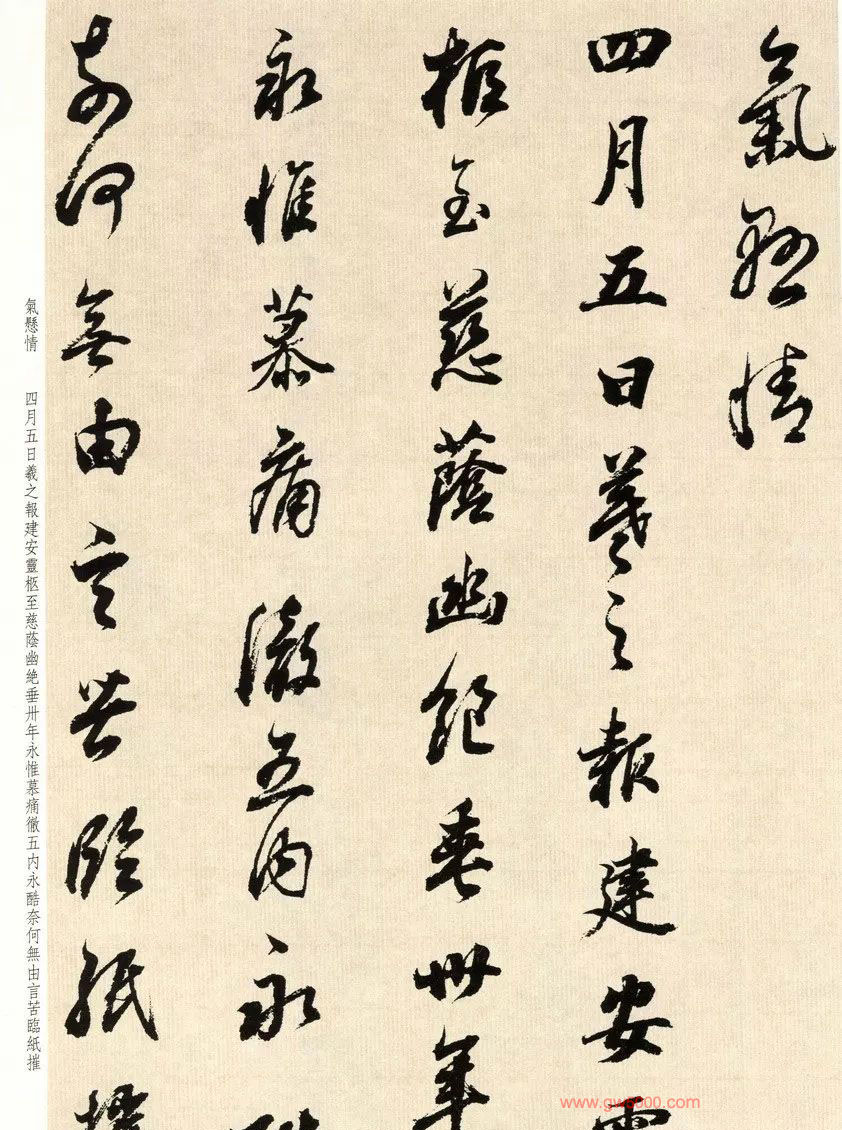 氣懸情
四月五日羲之報建安靈
柩至慈蔭幽絕垂卅年
永惟慕痛徹五內永酷
奈何無由言苦臨紙摧
氣懸情 四月五日羲之報建安靈柩至慈蔭幽絶垂卅年永惟慕痛徹五内永酷奈何無由言苦臨紙摧
www.gw6000.com